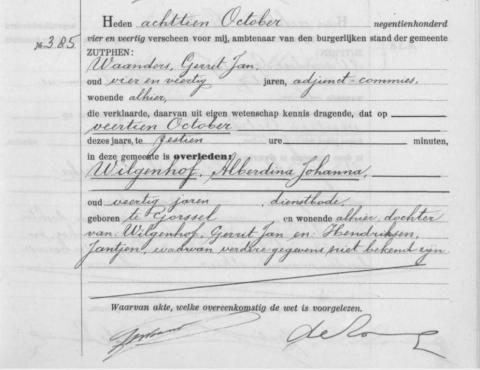 Heden achttien October negentienhonderd
No 385. vier en veertig verscheen voor mij, ambtenaar van den burgerlijken stand der gemeente
ZUTPHEN:
Waanders, Gerrit Jan,
oud vier en veertig jaren, adjunct-commies,
wonende alhier,
die verklaarde, daarvan uit eigen wetenschap kennis dragende, dat op
veertien October
dezes jaars, te zestien ure minuten,
in deze gemeente is overleden:
Wilgenhof, Alberdina Johanna,
oud veertig jaren, dienstbode,
geboren te Gorssel en wonende alhier, dochter
van: Wilgenhof, Gerrit Jan en: Hendriksen,
Jantjen, waarvan verdere gegevens niet bekend zijn.
Waarvan akte, welke overeenkomstig de wet is voorgelezen.